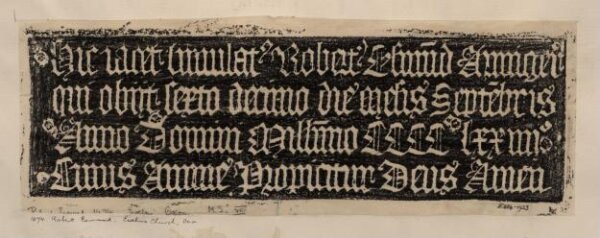 Hic iacet tumulatꝰ Robertꝰ Esmūd Armiger
qui obijt sexto decimo die mēsis Septēbris
Anno Domini Millīmo CCCC lxxiiijᵒ
Cuius Animeꝰ Propicietur Deus Amen
1474 Robert Esmund. Ewelme Church, Oxon